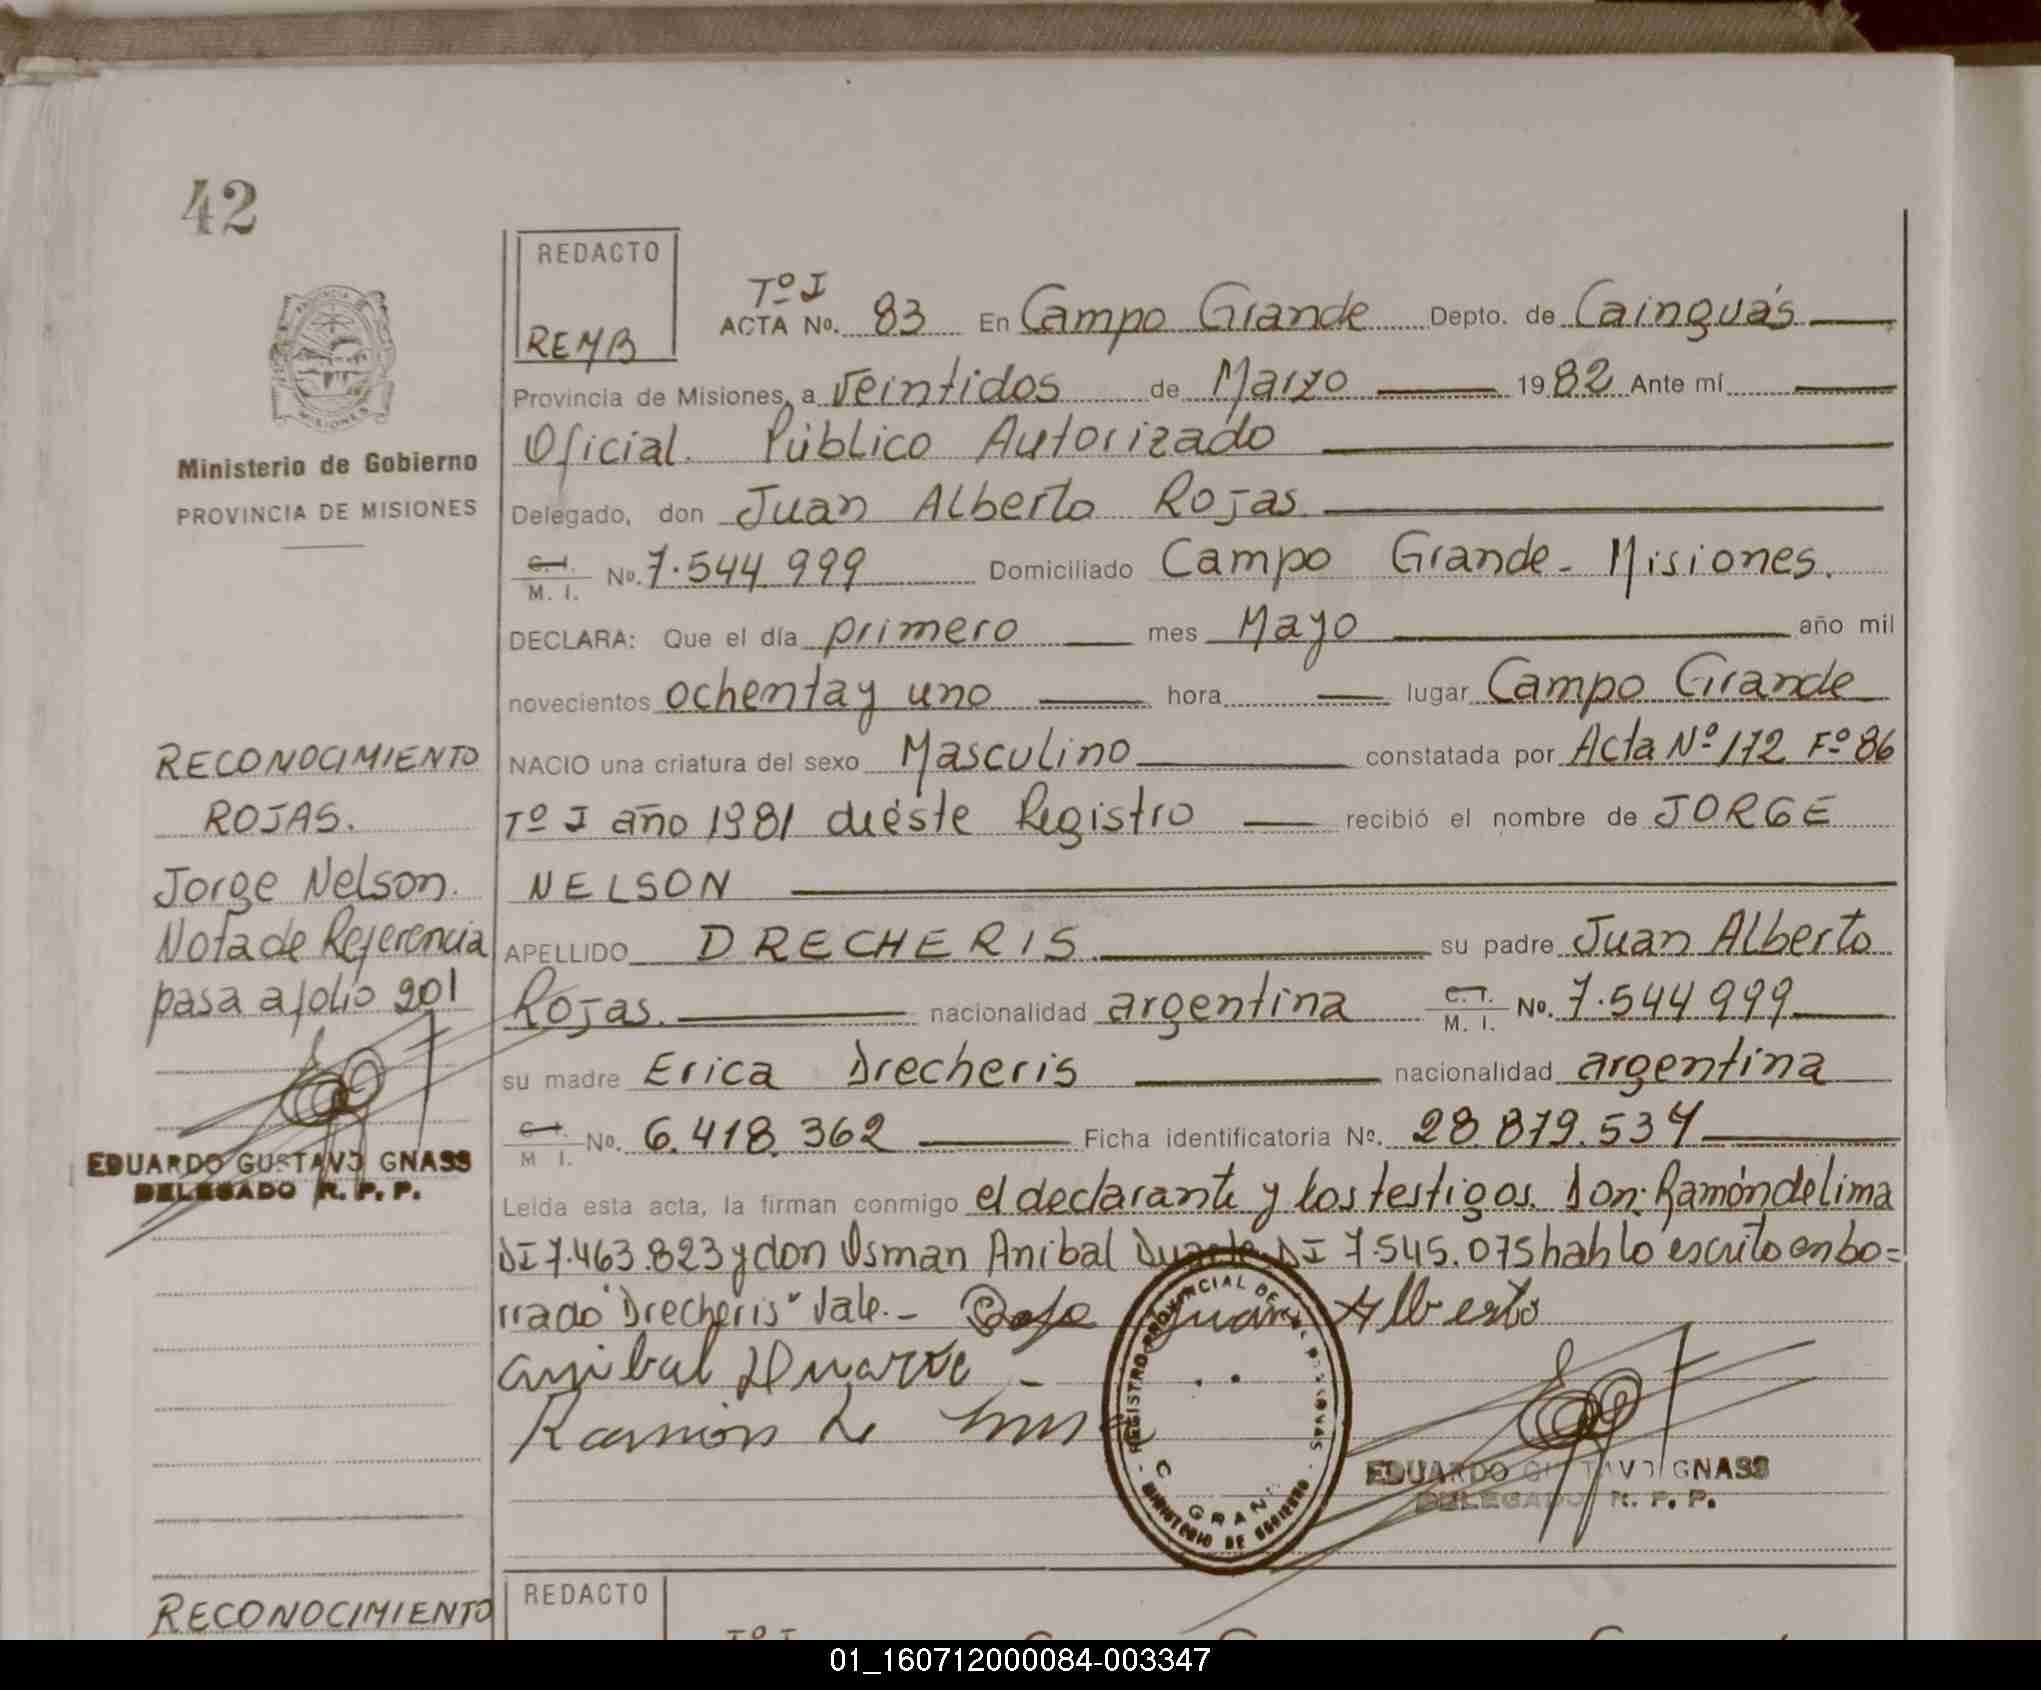 42
REDACTO
REMB
Tº I
ACTA No. 83 En Campo Grande Depto. de Cainguás
Provincia de Misiones, a Veintidos de Marzo 1982 Ante mí
Oficial Público Autorizado
Ministerio de Gobierno
PROVINCIA DE MISIONES
Delegado, don Juan Alberto Rojas
C. I.
M. I. No. 7.544 999 Domiciliado Campo Grande - Misiones.
DECLARA: Que el día primero mes Mayo año mil
novecientos ochenta y uno hora lugar Campo Grande
RECONOCIMIENTO
ROJAS.
Jorge Nelson.
Nota de Referencia
pasa a folio 201
EDUARDO GUSTAVO GNASS
DELEGADO R. P. P.
NACIO una criatura del sexo Masculino constatada por Acta Nº 172 Fº 86
Tº I año 1981 de éste Registro recibió el nombre de JORGE
NELSON
APELLIDO DRECHERIS su padre Juan Alberto
Rojas. nacionalidad argentina C. I. M. I. No. 7.544 999
su madre Erica Drecheris nacionalidad argentina
C. I. M I. No. 6.418.362 Ficha identificatoria No. 28.879.534
Leída esta acta, la firman conmigo el declarante y los testigos. Don: Ramón de lima
DI 7.463.823 y don Osman Anibal Duarte DI 7.545.075 hab lo escrito en bo=
rrado "Drecheris" Vale.- Juan Alberto
Anibal Duarte -
Ramon de
REGISTRO PROVINCIAL DE
C GRAN
MINISTERIO DE GOBIERNO
EDUARDO GUSTAVO GNASS
DELEGADO R. P. P.
RECONOCIMIENTO
REDACTO
Tº I
01_160712000084-003347